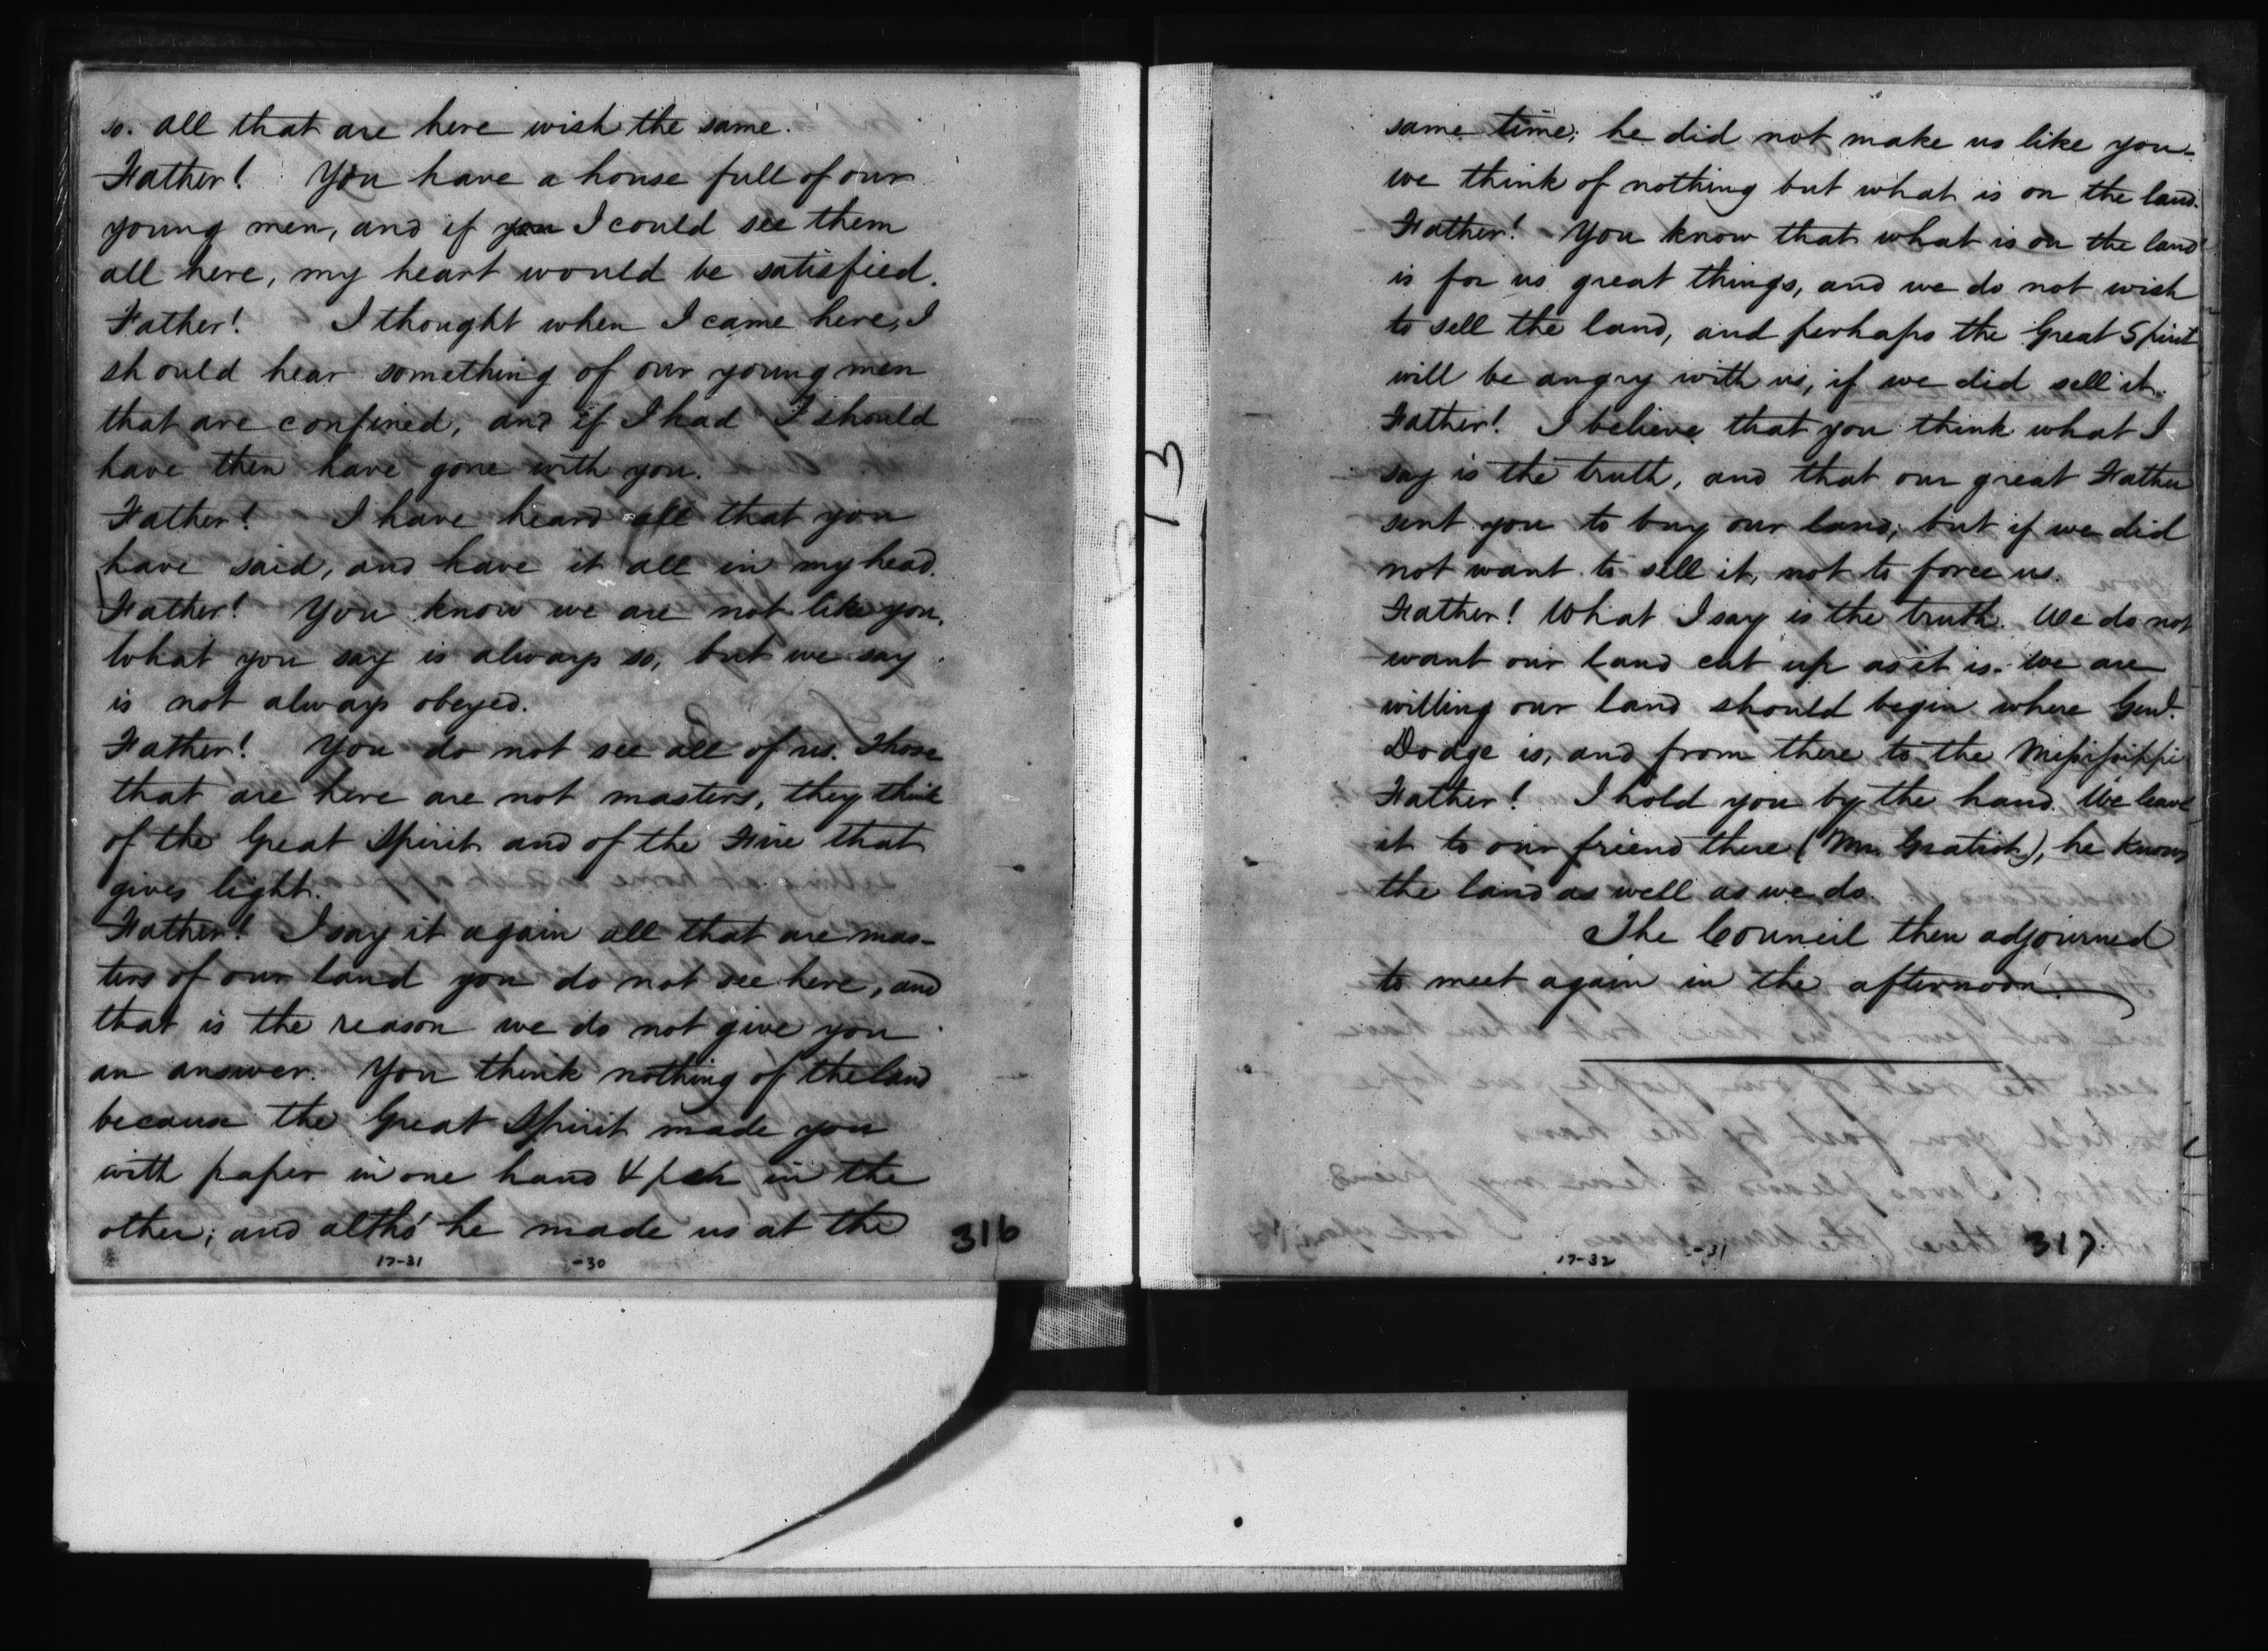 so. all that are here wish the same.
Father! You have a house full of our
young men, and if you I could see them
all here, my heart would be satisfied.
Father! I thought when I came here, I
should hear something of our young men
that are confined, and if I had I should
have then have gone with you.
Father! I have heard all that you
have said, and have it all in my head.
Father! You know we are not like you.
What you say is always so, but we say
is not always obeyed.
Father! You do not see all of us. Those
that are here are not masters, they think
of the Great Spirit and of the Fire that
gives light.
Father! I say it again all that are mas-
ters of our land you do not see here, and
that is the reason we do not give you
an answer. You think nothing of the land
because the Great Spirit made you
with paper in one hand & pen in the
other; and altho' he made us at the
316
17-31 -30
13
same time; he did not make us like you-
we think of nothing but what is on the land.
Father! You know that what is on the land
is for us great things, and we do not wish
to sell the land, and perhaps the Great Spirit
will be angry with us, if we did sell it.
Father! I believe that you think what I
say is the truth, and that our great Father
sent you to buy our land; but if we did
not want to sell it, not to force us.
Father! What I say is the truth. We do not
want our land cut up as it is. We are
willing our land should begin where Genl.
Dodge is, and from there to the Missisippi
Father! I hold you by the hand. We leave
it to our friend there (Mr. Gratiot), he knows
the land as well as we do.
The Council then adjourned
to meet again in the afternoon.
317.
17-32 -31